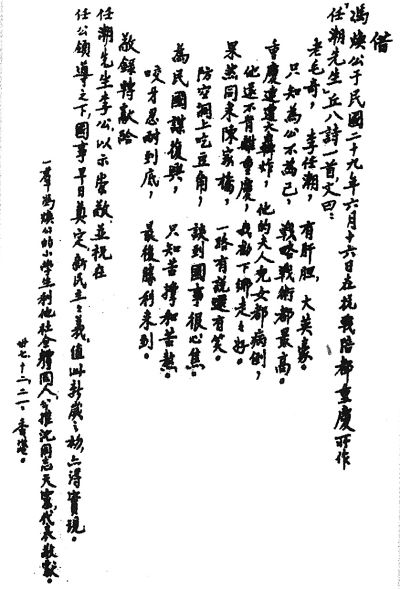 借
馮煥公于民國二十九年六月十六日在抗戰陪都重慶所作
「任潮先生」丘八詩一首，文曰：
老毛奇，李任潮，有肝胆，大英豪。
只知為公不為己，戰略戰術都最高。
重慶遭遇大轟炸，他的夫人兒女都病倒；
他還不肯離重慶，我勸下鄉走走好。
果然同來陳家橋，一路有說還有笑。
防空洞上吃豆角，談到國事很心焦。
為民國謀復興，只知苦撐和苦熬。
咬牙忍耐到底，最後勝利來到。
敬錄轉獻給
任潮先生李公，以示崇敬，並祝在
任公領導之下，國事早日奠定，新民主主義，值此新歲之初，亦得實現。
一羣馮煥公的小學生利他社全體同人，公推沈同志天靈，代表敬獻。
卅七、十二、二一。香港。